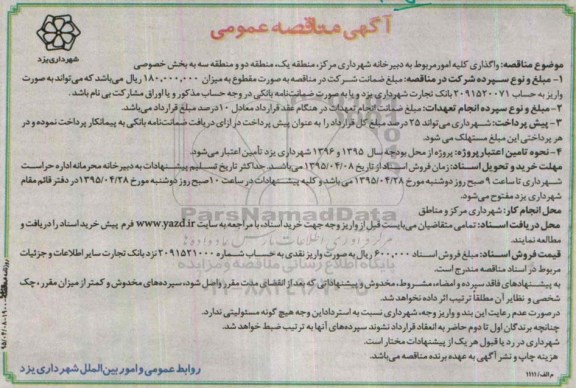 آگهی مناقصه عمومی
شهرداری یزد
موضوع مناقصه: واگذاری کلیه امور مربوط به دبیرخانه شهرداری مرکز، منطقه یک، منطقه دو و منطقه سه به بخش خصوصی
۱- مبلغ و نوع سپرده شرکت در مناقصه: مبلغ ضمانت شرکت در مناقصه به صورت مقطوع به میزان ۱۸۰,۰۰۰,۰۰۰ ریال می‌باشد که می‌تواند به صورت
واریز به حساب ۲۰۹۱۵۲۰۰۷۱ بانک تجارت شهرداری یزد و یا به صورت ضمانت‌نامه بانکی در وجه حساب مذکور و یا اوراق مشارکت بی نام باشد.
۲- مبلغ و نوع سپرده انجام تعهدات: مبلغ ضمانت انجام تعهدات در هنگام عقد قرارداد معادل ۱۰درصد مبلغ قرارداد می‌باشد.
۳- پیش پرداخت: شهرداری می‌تواند ۲۵ درصد مبلغ کل قرارداد را به عنوان پیش پرداخت در ازای دریافت ضمانت‌نامه بانکی به پیمانکار پرداخت نموده و در
هر پرداختی این مبلغ مستهلک می شود.
۴- نحوه تامین اعتبار پروژه: پروژه از محل بودجه سال ۱۳۹۵ و ۱۳۹۶ شهرداری یزد تأمین اعتبار می‌شود.
مهلت خرید و تحویل اسناد: زمان فروش اسناد از تاریخ ۱۳۹۵/۰۴/۰۸ می‌باشد. حداکثر تاریخ تسلیم پیشنهادات به دبیرخانه محرمانه اداره حراست
شهرداری تا ساعت ۹ صبح روز دوشنبه مورخ ۱۳۹۵/۰۴/۲۸ می‌باشد و کلیه پیشنهادات در ساعت ۱۰ صبح روز دوشنبه مورخ ۱۳۹۵/۰۴/۲۸ در دفتر قائم مقام
شهرداری یزد مفتوح می‌شود.
محل انجام کار: شهرداری مرکز و مناطق
محل دریافت اسناد: تمامی متقاضیان می‌بایست قبل از واریز وجه جهت خرید اسناد، با مراجعه به سایت www.yazd.ir فرم پیش خرید اسناد را دریافت و
مطالعه نمایند.
قیمت فروش اسناد: مبلغ فروش اسناد ۶۰۰,۰۰۰ ریال به صورت واریز نقدی به حساب شماره ۲۰۹۱۵۲۱۰۰۰ نزد بانک تجارت سایر اطلاعات و جزئیات
مربوط در اسناد مناقصه مندرج است.
به پیشنهادهای فاقد سپرده و امضاء، مشروط، مخدوش و پیشنهاداتی که بعد از انقضای مدت مقرر واصل شود، سپرده‌های مخدوش و کمتر از میزان مقرر، چک
شخصی و نظایر آن مطلقاً ترتیب اثر داده نخواهد شد.
درصورت عدم رعایت این بند و واریز وجه، شهرداری نسبت به استرداد این وجه هیچ گونه مسئولیتی ندارد.
چنانچه برندگان اول تا دوم حاضر به انعقاد قرارداد نشوند سپرده‌های آنها به ترتیب ضبط خواهد شد.
شهرداری در رد یا قبول هر یک از پیشنهادات مختار است.
هزینه چاپ و نشر آگهی به عهده برنده مناقصه می‌باشد.
روابط عمومی و امور بین الملل شهرداری یزد
م الف/۱۱۱۱
ParsNamadData